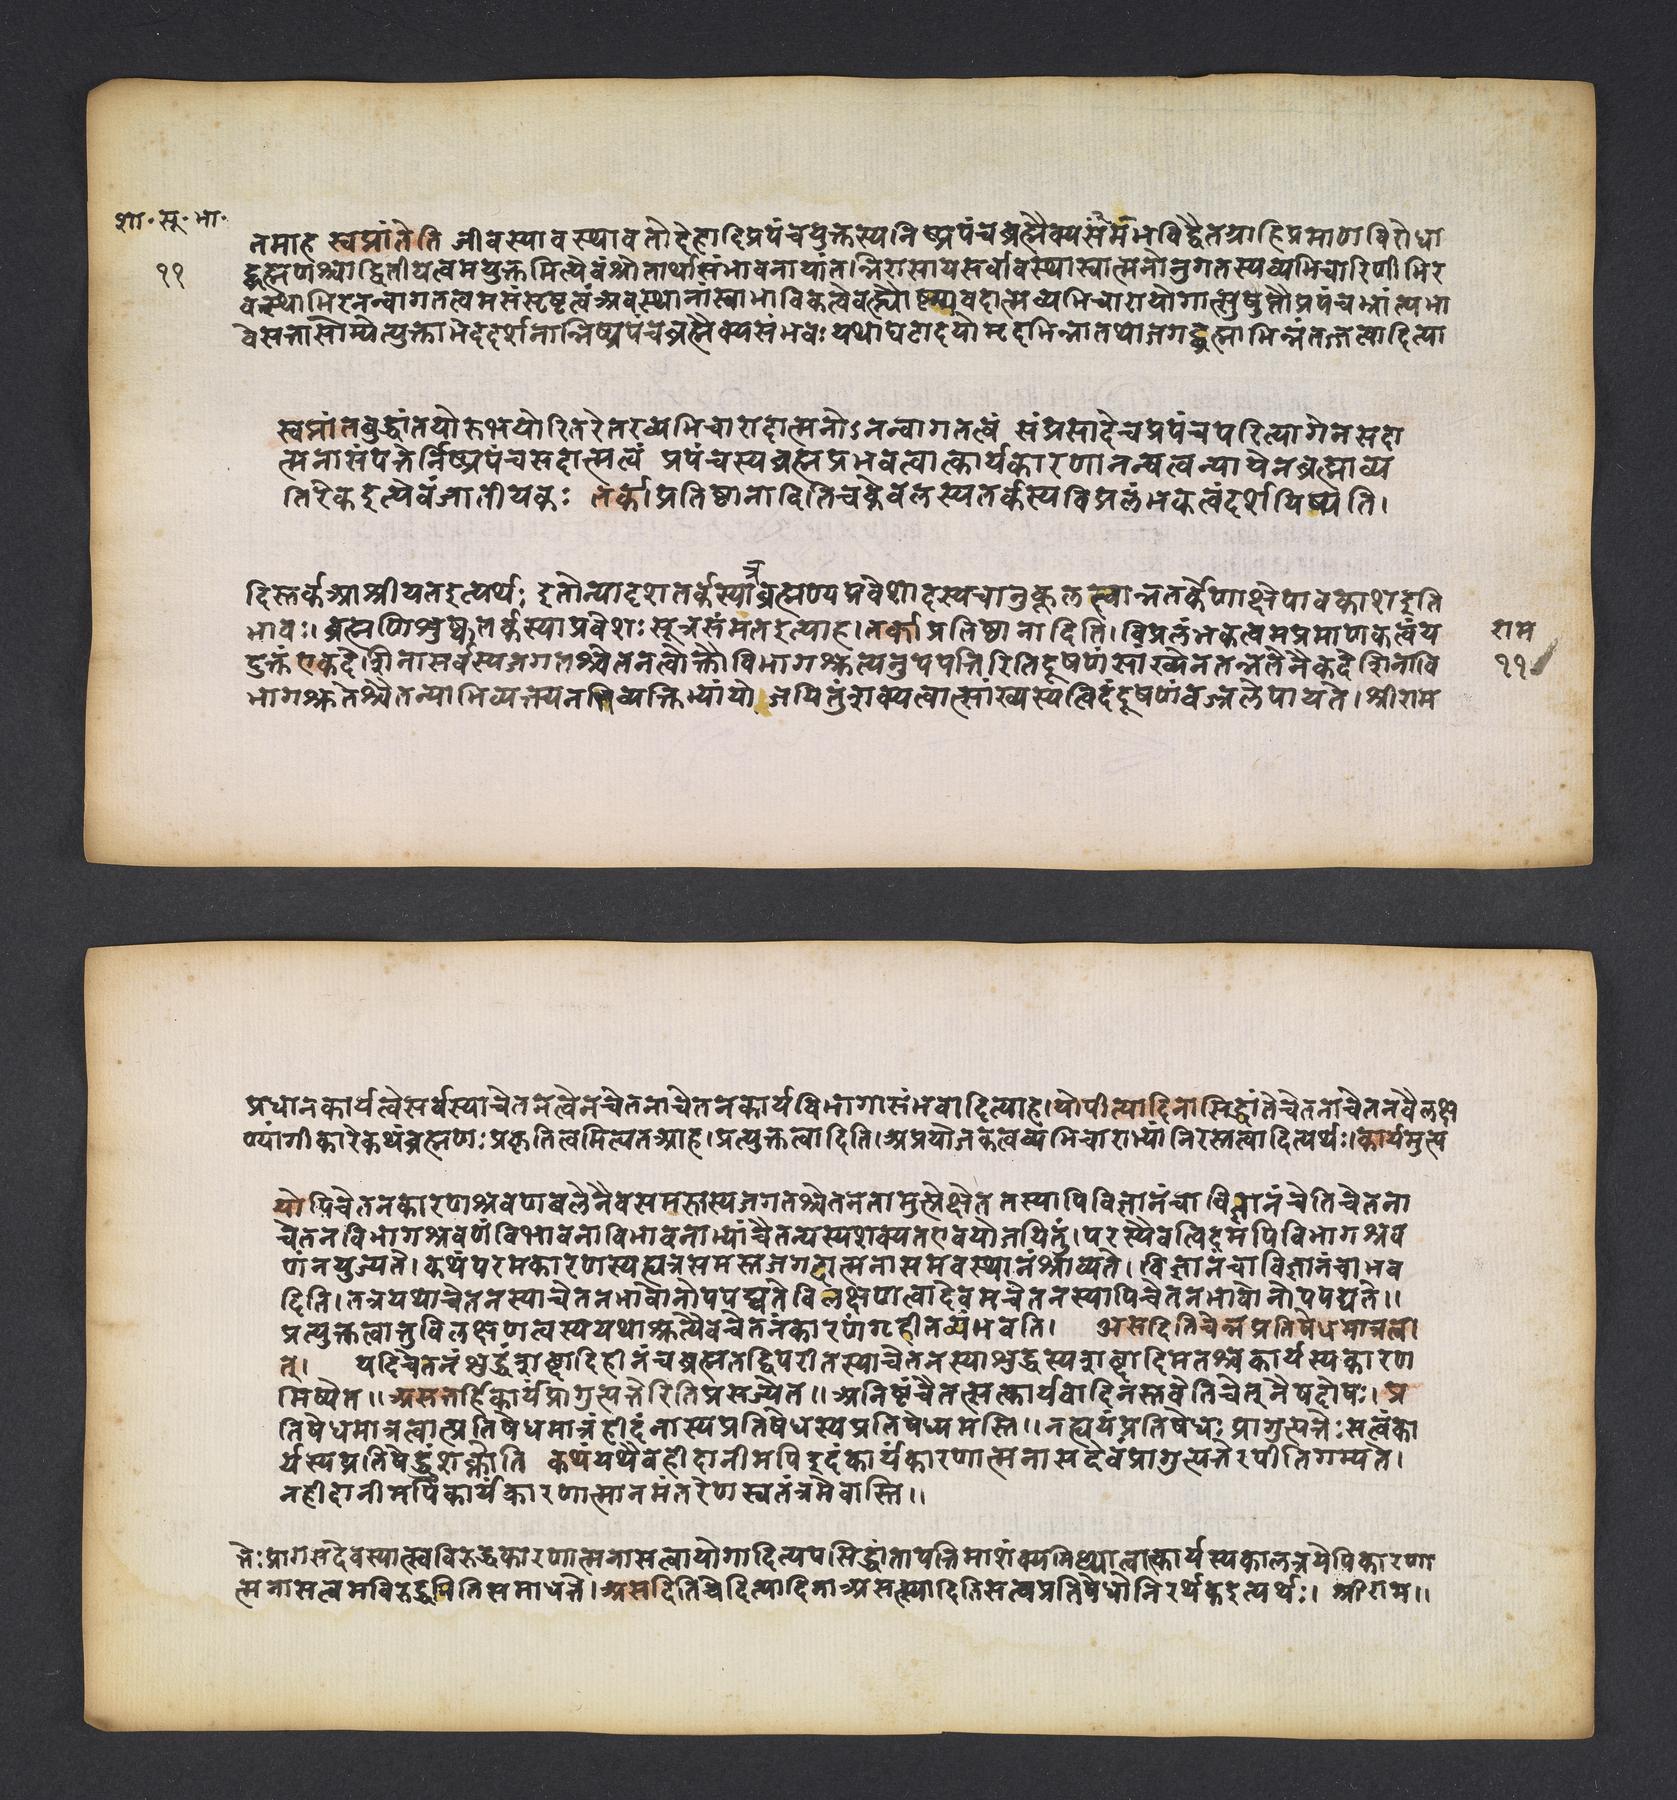 शा॰ सू॰ भा॰
११
तमाह स्वप्नांतेति जीवस्यावस्थावतोदेहादिप्रपंचयुक्तस्यनिष्प्रपंचब्रह्मैक्यसंमंभविद्वैतग्राहिप्रमाणविरोधा
द्ब्रह्मणश्चाद्वितीयत्वमयुक्तमित्येवंश्रौतार्थासंभावनायांत।न्निरासायसर्वावस्थास्वात्मनोनुगतस्यव्यभिचारिणीभिर
वस्थाभिरनन्वागतत्वमसंसृष्टत्वंअवस्थानांस्वाभाविकत्वेवह्न्यौष्ण्यवदात्मव्यभिचारायोगात्सुषुप्तौप्रपंचभ्रांत्यभा
वेसतासोम्येत्युक्ताभेददर्शनान्निष्प्रपंचब्रह्मैक्यसंभवः यथाघटादयोमृदभिन्नातथाजगद्ब्रह्माभिन्नंतज्जत्वादित्या
स्वप्नांतबुद्धांतयोरुभयोरितरेतरव्यभिचारादात्मनोऽनन्वागतत्वं संप्रसादेचप्रपंचपरित्यागेनसदा
त्मनासंपत्तेर्निष्प्रपंचसदात्मत्वं प्रपंचस्यब्रह्मप्रभवत्वात्कार्यकारणानन्यत्वन्यायेनब्रह्माव्य
तिरेकइत्येवंजातीयकः तर्काप्रतिष्ठानादितिचकेवलस्यतर्कस्यविप्रलंभकत्वंदर्शयिष्यति।
दिस्तर्कआश्रीयतइत्यर्थः इतोन्यादृशतर्कस्यात्रब्रह्मण्यप्रवेशादस्यचानुकूलत्वान्नतर्केणाक्षेपावकाशइति
भावः। ब्रह्मणिशुष्कतर्कस्याप्रवेशः सूत्रसंमतइत्याह।तर्काप्रतिष्ठानादिति।विप्रलंभकत्वमप्रमाणकत्वंय
दुक्तंएकदेशिनासर्वस्यजगतश्चेतनत्वोक्तौविभागश्रुत्यनुपपत्तिरितिदूषणंसांख्येनतन्नतेनैकदेशिनावि
भागश्रुतेश्चैतन्याभिव्यक्त्यनभिव्यक्तिभ्यांयोजयितुंशक्यत्वात्सांख्यस्यत्विदंदूषणंवज्रलेपायते।श्रीराम
राम
११
प्रधानकार्यत्वेसर्वस्याचेतनत्वेनचेतनाचेतनकार्यविभागासंभवादित्याह।योपीत्यादिनासिद्धांतेचेतनाचेतनवैलक्ष
ण्यांगीकारेकथंब्रह्मणः प्रकृतित्वमित्यतआह।प्रत्युक्तत्वादिति।अप्रयोजकत्वव्यभिचाराभ्यांनिरस्तत्वादित्यर्थः।कार्यमुत्प
योपिचेतनकारणश्रवणबलेनैवसमस्तस्यजगतश्चेतनतामुत्प्रेक्षेत तस्यापिविज्ञानंचाविज्ञानंचेतिचेतना
चेतनविभागश्रवणंविभावनाविभावनाभ्यांचैतन्यस्यशक्यतएवयोजयितुं।परस्यैवत्विदमपिविभागश्रव
णंनयुज्यते।कथंपरमकारणस्यह्यत्रसमस्तजगदात्मनासमवस्थानंश्राव्यते।विज्ञानंचाविज्ञानंचाभव
दिति।तत्रयथाचेतनस्याचेतनभावोनोपपद्यतेविलक्षणत्वादेवमचेतनस्यापिचेतनभावोनोपपद्यते॥
प्रत्युक्तत्वात्तुविलक्षणत्वस्ययथाश्रुत्यैवचेतनंकारणंगृहीतव्यंभवति। असदितिचेन्नप्रतिषेधमात्रत्वा
त्। यदिचेतनंशुद्धंशब्दादिहीनंचब्रह्मतद्विपरीतस्याचेतनस्याशुद्धस्यशब्दादिमतश्चकार्यस्यकारण
मिष्येत॥असत्तर्हिकार्यंप्रागुत्पत्तेरितिप्रसज्येत॥अनिष्टंचैतत्सत्कार्यवादिनस्तवेतिचेत्नैषदोषः।प्र
तिषेधमात्रत्वात्प्रतिषेधमात्रंहीदंनास्यप्रतिषेधस्यप्रतिषेध्यमस्ति॥नह्ययंप्रतिषेधः प्रागुत्पत्तेःसत्वंका
र्यस्यप्रतिषेद्धुंशक्नोति कथंयथैवहीदानीमपिइदंकार्यंकारणात्मनासदेवंप्रागुत्पत्तेरपीतिगम्यते।
नहीदानीमपिकार्यंकारणात्मानमंतरेणस्वतंत्रमेवास्ति॥
त्तेःप्रागसदेवस्यात्स्वविरुद्धकारणात्मनासत्वायोगादित्यपसिद्धांतापत्तिमाशंक्यमिथ्यात्वात्कार्यस्यकालत्रयेपिकारणा
त्मनासत्वमविरुद्धमितिसमाधत्ते।असदितिचेदित्यादिनाअसत्स्यादितिसत्वप्रतिषेधोनिरर्थकइत्यर्थः। श्रीराम॥